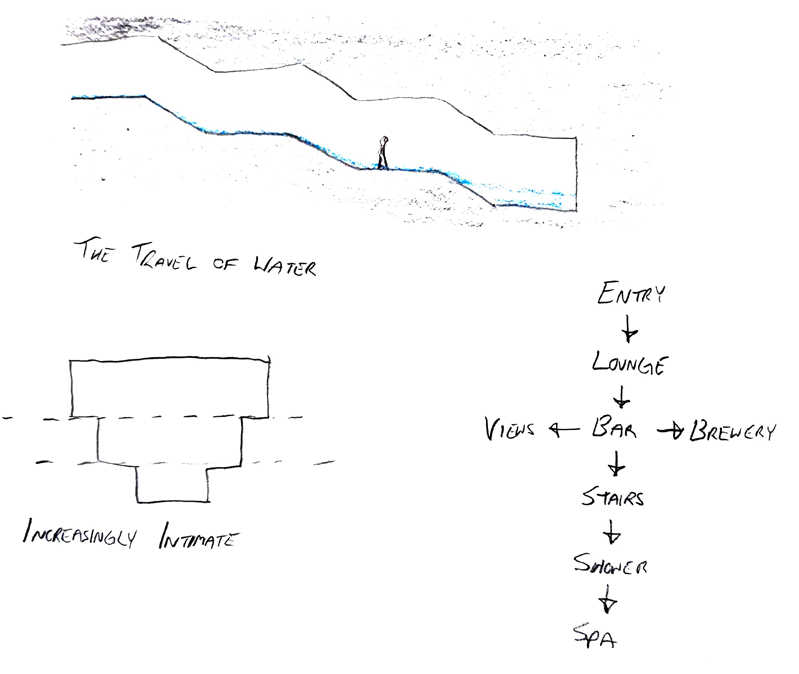 THE TRAVEL OF WATER
ENTRY
LOUNGE
VIEWS ← BAR → BREWERY
STAIRS
SHOWER
SPA
INCREASINGLY INTIMATE